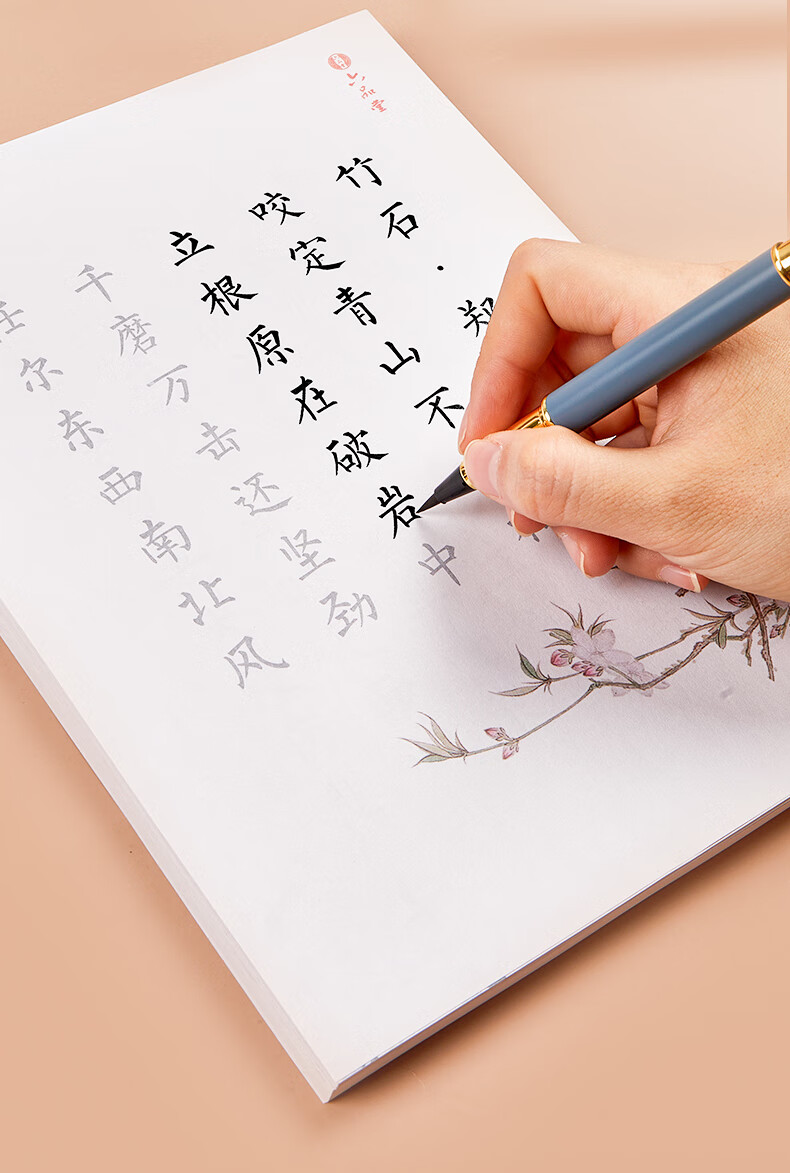 六品堂
竹石·郑
咬定青山不
立根原在破岩中
千磨万击还坚劲
任尔东西南北风